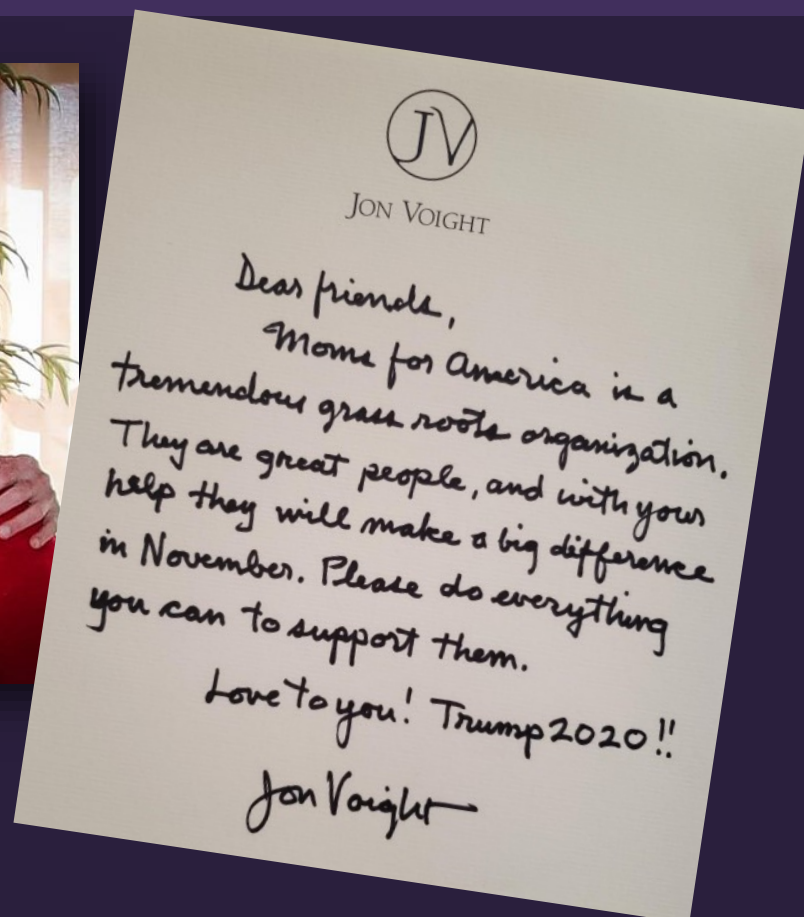 JV
JON VOIGHT
Dear friends,
Moms for America is a
tremendous grass roots organization.
They are great people, and with your
help they will make a big difference
in November. Please do everything
you can to support them.
Love to you! Trump 2020!!
Jon Voight